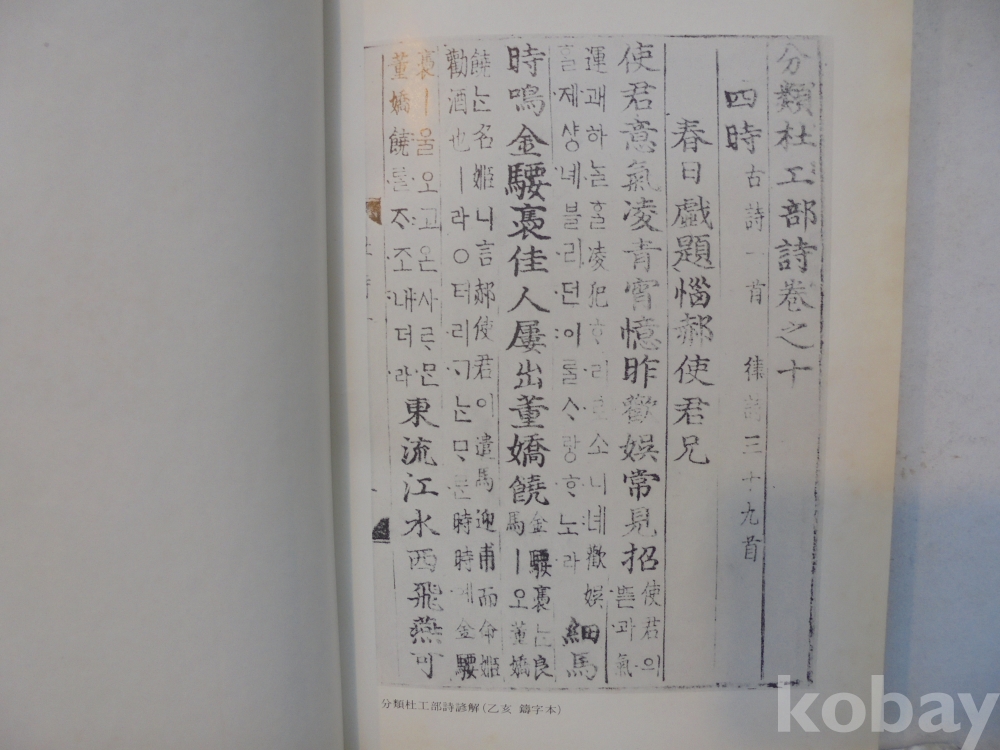 分類杜工部詩卷之十
四時 古詩一首 律詩三十九首
春日戱題惱郝使君兄
使君意氣凌靑霄憶昨歡娛常見招
使君의
ᄠᅳᆮ과氣
運괘하ᄂᆞᆯᄒᆞᆯ凌犯ᄒᆞ리소니녜歡娛
ᄒᆞᆯ제샹녜블리던이ᄅᆞᆯᄉᆞ랑ᄒᆞ노라
細馬
時鳴金騕褭佳人屢出董嬌饒
金騕褭ᄂᆞᆫ良
馬ㅣ오董嬌
饒ᄂᆞᆫ名姬니言郝使君이遣馬迎甫而命姬
勸酒也ㅣ라○터리ᄀᆞᄂᆞᆫᄆᆞᄅᆞᆫ時時예金騕
褭ㅣ울오고온사ᄅᆞᄆᆞᆫ
董嬌饒ᄅᆞᆯᄌᆞ조내더라
東流江水西飛燕可
分類杜工部詩諺解(乙亥 鑄字本)
kobay